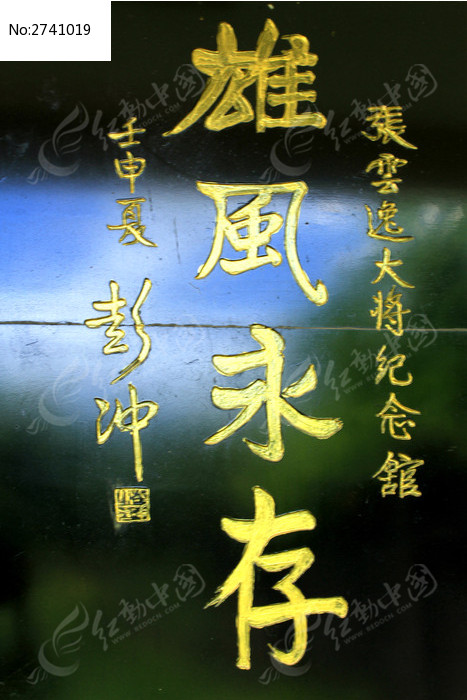 No:2741019
張雲逸大將纪念舘
雄風永存
壬申夏
彭冲
红动中国
WWW.REDOCN.COM